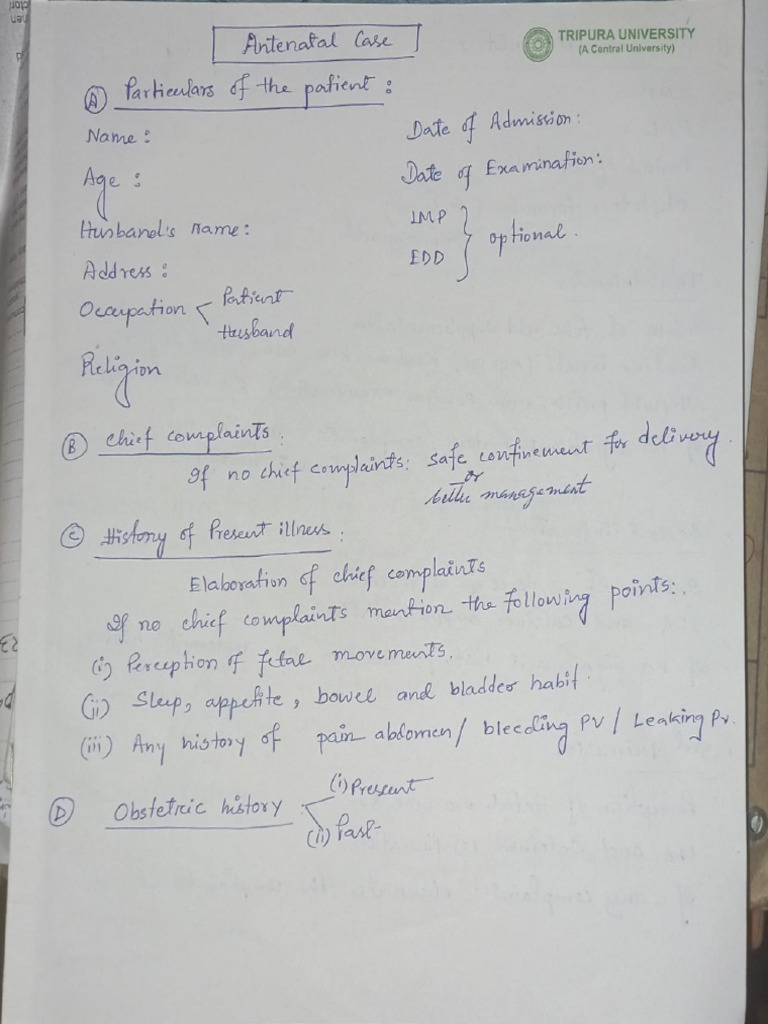 Antenatal Case
TRIPURA UNIVERSITY
(A Central University)
(A) Particulars of the patient :
Name :
Date of Admission :
Age :
Date of Examination :
Husband's name :
LMP
EDD
optional .
Address :
Occupation < Patient
Husband
Religion
(B) Chief complaints :
If no chief complaints : safe confinement for delivery .
or
better management
(C) History of Present illness :
Elaboration of chief complaints
If no chief complaints mention the following points : .
(i) Perception of fetal movements .
(ii) Sleep, appetite, bowel and bladder habit .
(iii) Any history of pain abdomen / bleeding PV / Leaking Pv .
(D) Obstetric history : (i) Present
(ii) Past